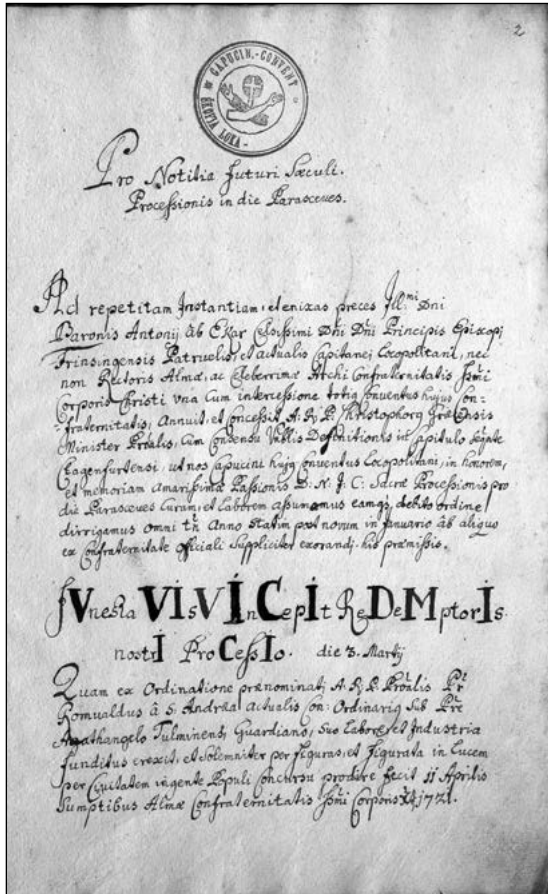 2
CAPUCIN.-CONVENT
LOKA
Pro Notitia futuri Sæculi.
Processionis in die Parasceves.
Ad repetitam Instantiam, et enixas preces Ill:mi Dni
Baronis Antonij ab Ekar Celsissimi Dni Dni Principis Episcopi
Frinsingensis Patruelis, et actualis Capitanei Locopolitani, nec
non Rectoris Almæ, ac Celeberrimæ Archi Confraternitatis Ssmi
Corporis Christi una Cum intercessione totig Conventus hujus Con-
fraternitatis, Annuit, et Concessit A: R: P: Christophorg Græcensis
Minister Pröälis, Cum Consensu Vnblis Definitionis in Capitulo
Clagenfurtensi, ut nos Capucini hujg Conventus Locopolitani, in honorem,
et memoriam amarissimæ Passionis D: N: J: C: Sacræ Processionis pro
die Parasceves Curam, et Laborem assumamus eamq3, debito ordine
dirrigamus omni tn Anno statim post novum in Januario ab aliquo
ex Confraternitate Officiali Suppliciter exorandj. his præmissis.
fVnesta VIsVInCepIt ReDeMptorIs
nostrI ProCessIo. die 3. Martij
Quam ex Ordinatione prænominatj A: R: P: Pröälis Pr
Romualdus à S: Andrea actualis Con: Ordinarig Sub Pre
Agathangelo Tulminensi Guardiano, Suo Labore, et Industria
funditus erexit, et Solemniter per figuras, et figurata in Lucem
per Civitatem ingente Populi Concursu prodire fecit 11 Aprilis
Sumptibus Almæ Confraternitatis Ssmi Corporis 1721.